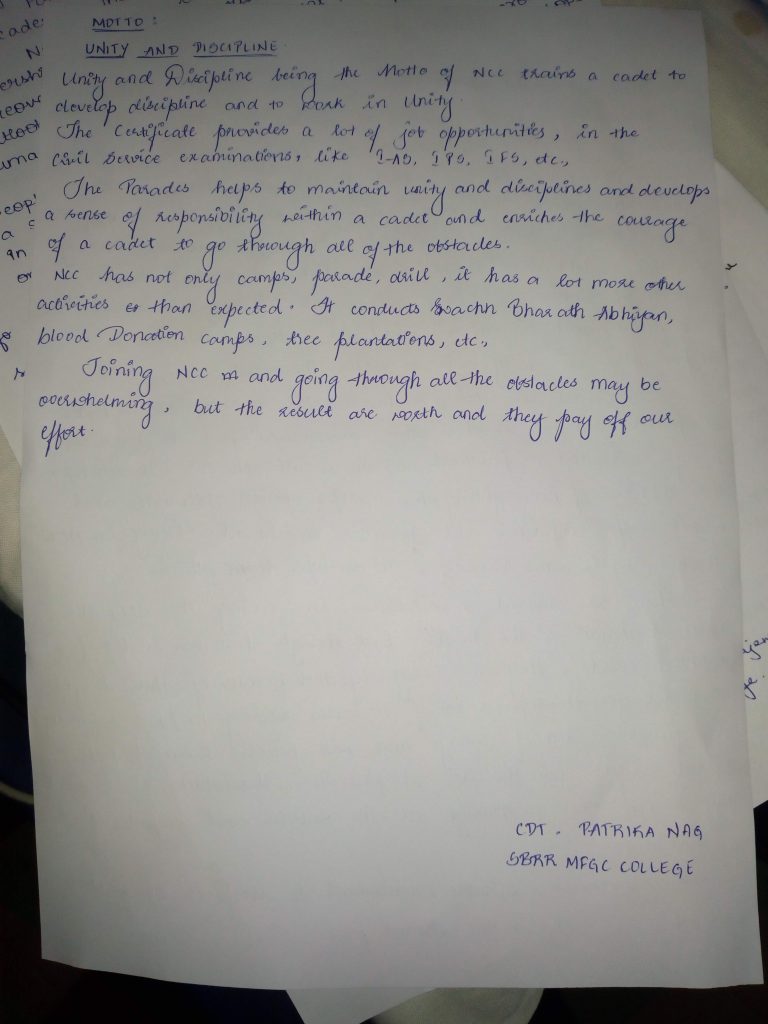 MOTTO :
UNITY AND DISCIPLINE.
Unity and Discipline being the Motto of NCC trains a cadet to
develop discipline and to work in Unity.
The Certificate provides a lot of job opportunities, in the
Civil Service examinations, like IAS, IPS, IFS, etc.,
The Parades helps to maintain unity and disciplines and develops
a sense of responsibility within a cadet and enriches the courage
of a cadet to go through all of the obstacles.
NCC has not only camps, parade, drill, it has a lot more other
activities than expected. It conducts Swachh Bharath Abhiyan,
blood Donation camps, tree plantations, etc.,
Joining NCC and going through all the obstacles may be
overwhelming, but the result are worth and they pay off our
effort.
CDT. PATRIKA NAG
SBRR MFGC COLLEGE